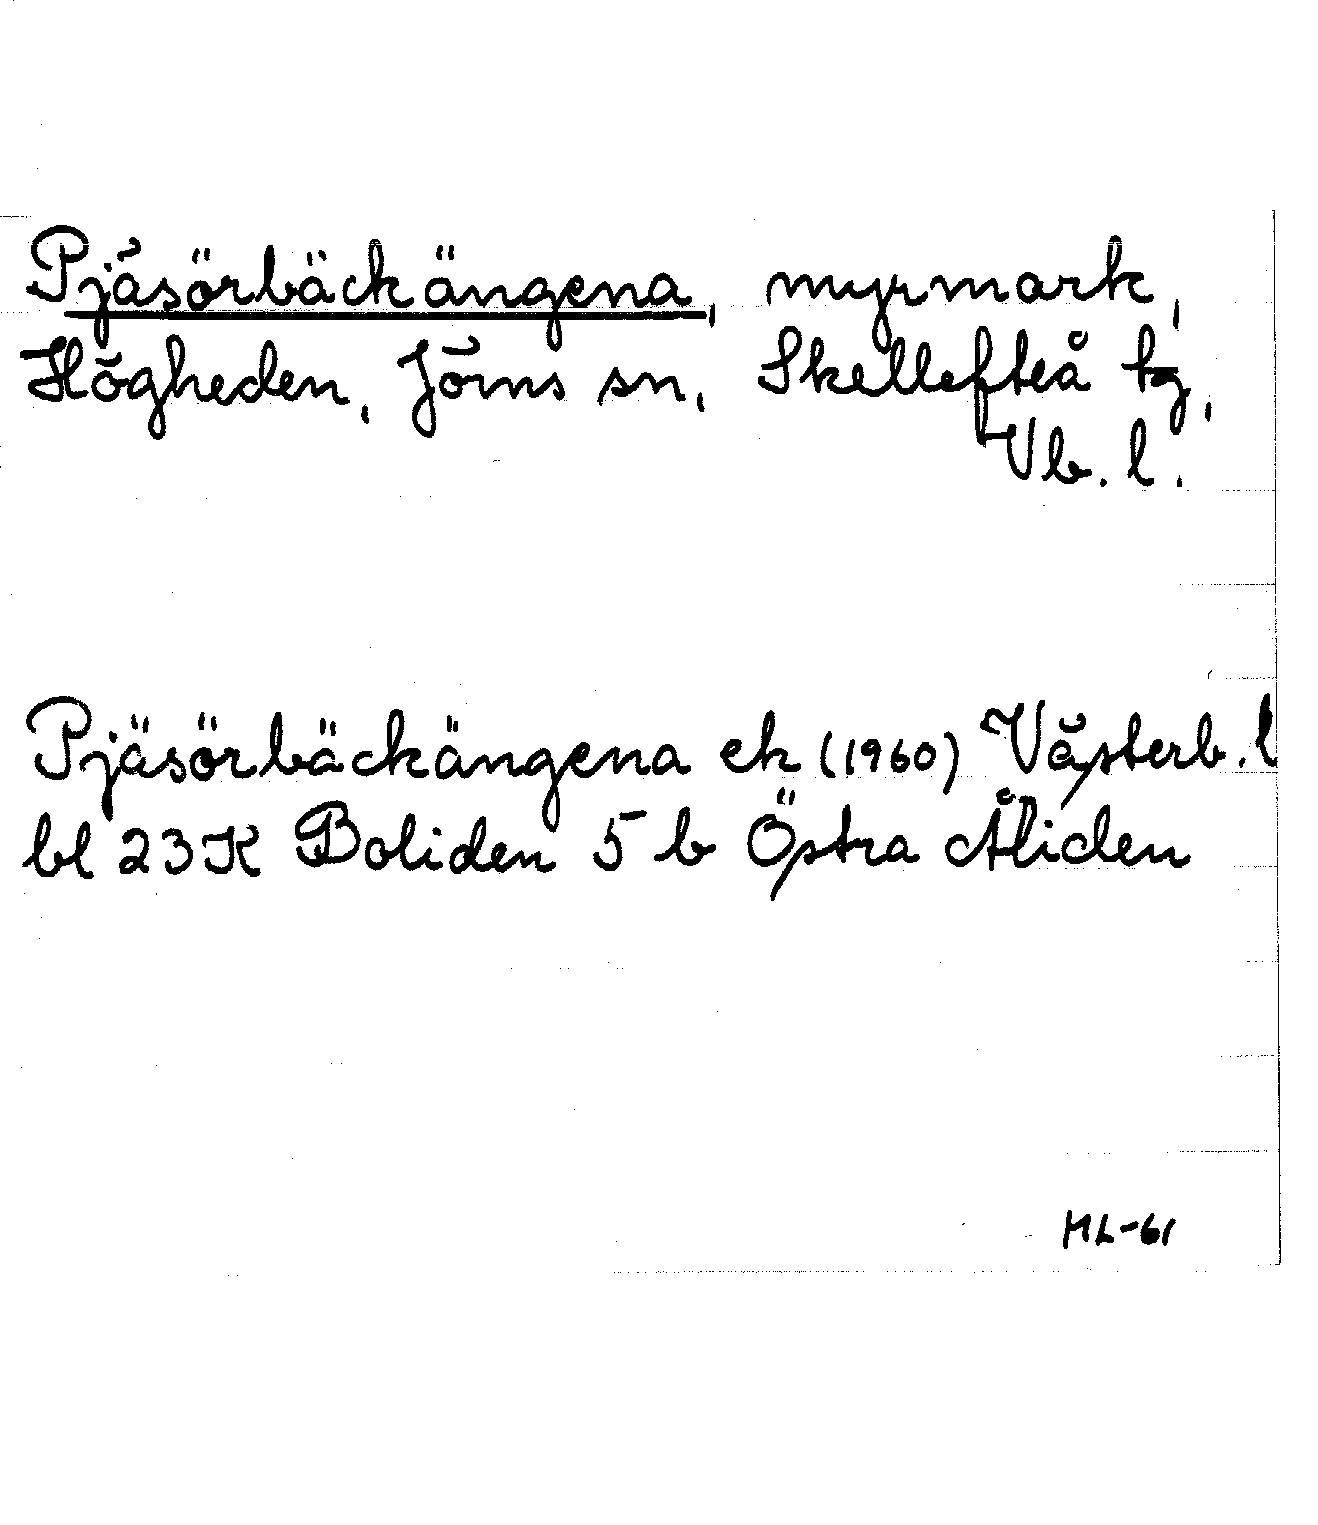 Pjäsörbäckängena, myrmark,
Högheden, Jörns sn, Skellefteå tg,
Vb. l.
Pjäsörbäckängena ek (1960) Västerb. l
bl 23K Boliden 5 b Östra Åliden
HL-61